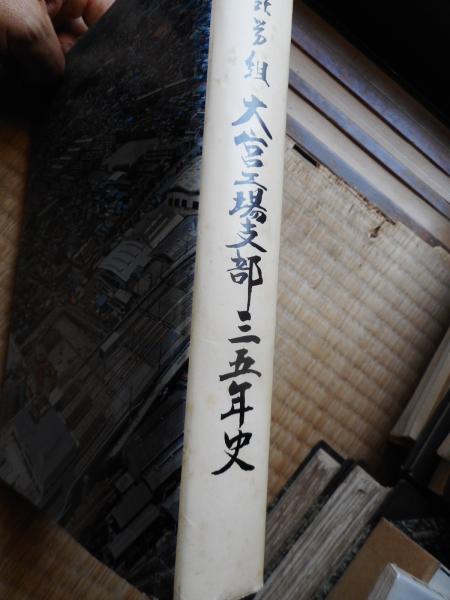 労組 大宮工場支部三五年史